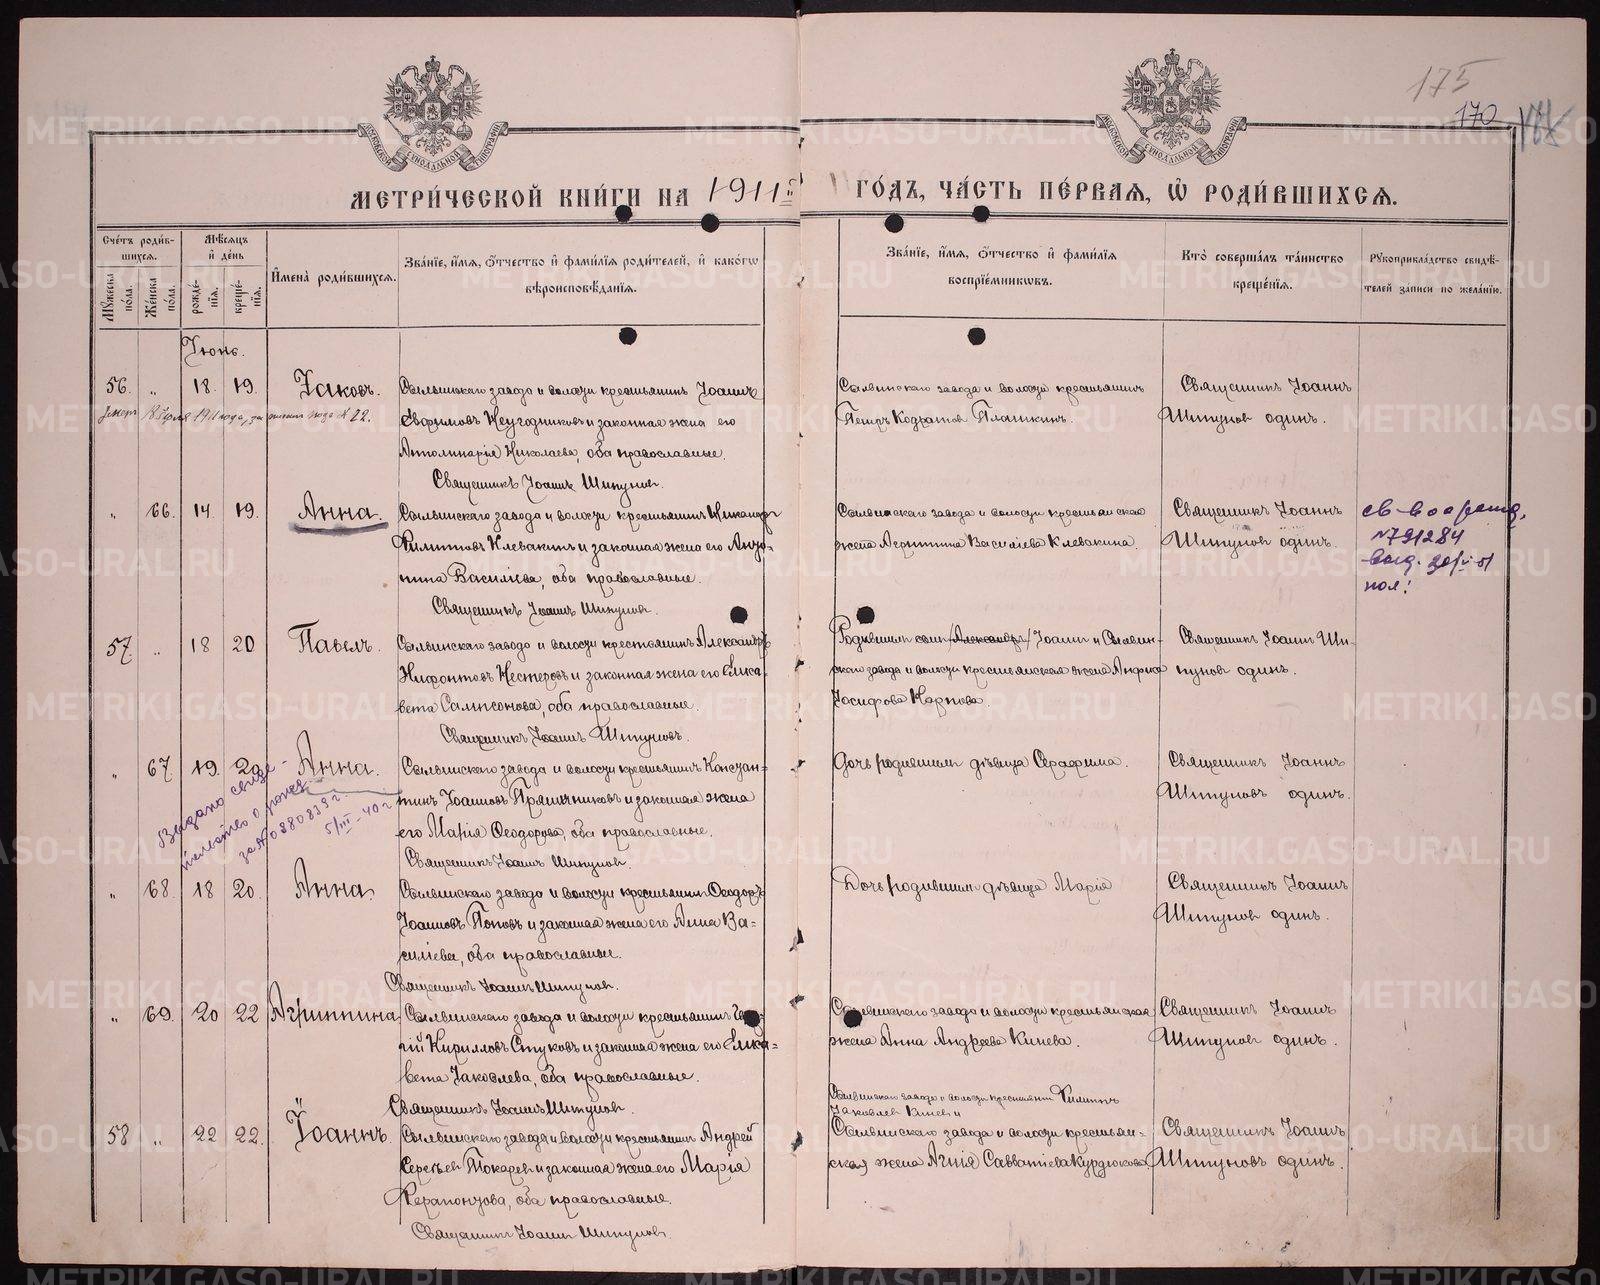 175
170
МЕТРИ́ЧЕСКОЙ КНИ́ГИ НА 1911 ГО́ДЪ, ЧА́СТЬ ПЕ́РВАЯ, Ѡ҆ РОДИ́ВШИХСЯ.
Сче́тъ роди́в-
шихся.
Мѣ́сяцъ
и҆ де́нь
Мꙋ́жеска по́ла.
Же́нска по́ла.
рожде́-
нїя.
креще́-
нїя.
И҆мена̀ роди́вшихся.
Зва́нїе, и҆́мя, ѻ҆́тчество и҆ фами́лїя роди́телей, и҆ како́гѡ
вѣроисповѣ́данїя.
Зва́нїе, и҆́мя, ѻ҆́тчество и҆ фами́лїя
воспрїе́мникѡвъ.
Кто̀ соверша́лъ та́инство
креще́нїя.
Рꙋкоприкла́дство свидѣ́-
телей за́писи по жела́нїю.
Іюнь.
56. „ 18. 19. Іаковъ.
Сылвинскаго завода и волости крестьянинъ Іоаннъ
Евфимовъ Неугодниковъ и законная жена его
Апполинарія Николаева, оба православные.
Священникъ Іоаннъ Шипунов.
Сылвинскаго завода и волости крестьянинъ
Петръ Плашкинъ.
Священникъ Іоаннъ
Шипунов один.
„ 66. 14. 19. Анна.
Сылвинскаго завода и волости крестьянинъ Никаноръ
Филипповъ Клевакинъ и законная жена его Анто-
нина Василіева, оба православные.
Священникъ Іоаннъ Шипунов.
Сылвинскаго завода и волости крестьянская
жена Василіева Клевакина.
Священникъ Іоаннъ
Шипунов одинъ.
57. „ 18 20 Павелъ.
Сылвинскаго завода и волости крестьянинъ Александръ
Нифонтовъ Нестеровъ и законная жена его Елиса-
вета Сампсонова, оба православные.
Священникъ Іоаннъ Шипуновъ.
Іоаннъ и Сылвин-
скаго завода и волости крестьянская жена
Іосифова Карпова.
Священникъ Іоаннъ Ши-
пунов одинъ.
„ 67 19. 20. Анна.
Выдано свиде-
тельство о рожд.
за № 0880839 г.
5/III-40 г
Сылвинскаго завода и волости крестьянинъ Констан-
тинъ Іоанновъ Пряничниковъ и законная жена
его Марія Ѳеодорова, оба православные.
Священникъ Іоаннъ Шипунов.
Дочь родившихъ дѣвица Серафима.
Священникъ Іоаннъ
Шипуновъ одинъ.
„ 68. 18 20. Анна.
Сылвинскаго завода и волости крестьянинъ Ѳеодоръ
Іоанновъ Поповъ и законная жена его Анна Ва-
силіева, оба православные.
Священникъ Іоаннъ Шипунов.
Дочь родившихъ дѣвица Марія
Священникъ Іоаннъ
Шипунов одинъ.
„ 69. 20 22 Агриппина
Сылвинскаго завода и волости крестьянинъ
Кирилловъ Стуковъ и законная жена его Елиса-
вета Іаковлева, оба православные.
Священникъ Іоаннъ Шипунов.
Сылвинскаго завода и волости крестьянская
жена Анна Андреева Кинева.
Священникъ Іоаннъ
Шипунов одинъ.
58 „ 22 22. Іоаннъ.
Сылвинскаго завода и волости крестьянинъ Андрей
Сергѣев Токарев и законная жена его Марія
Ферапонтова, оба православные.
Священникъ Іоаннъ Шипунов.
Сылвинскаго завода и волости крестьянинъ Филиппъ
Іаковлев Кинев и
Сылвинскаго завода и волости крестьян-
ская жена Агнія Савватіева Курдюкова.
Священникъ Іоаннъ
Шипуновъ одинъ.
METRIKI.GASO-URAL.RU